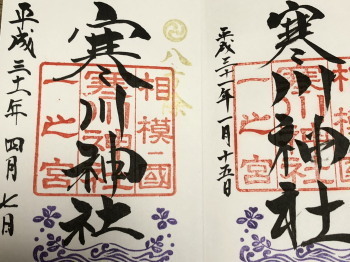 八方除
寒川神社
相模國
寒川神社
一之宮
平成三十一年四月七日
寒川神社
相模國
寒川神社
一之宮
平成三十一年一月十五日